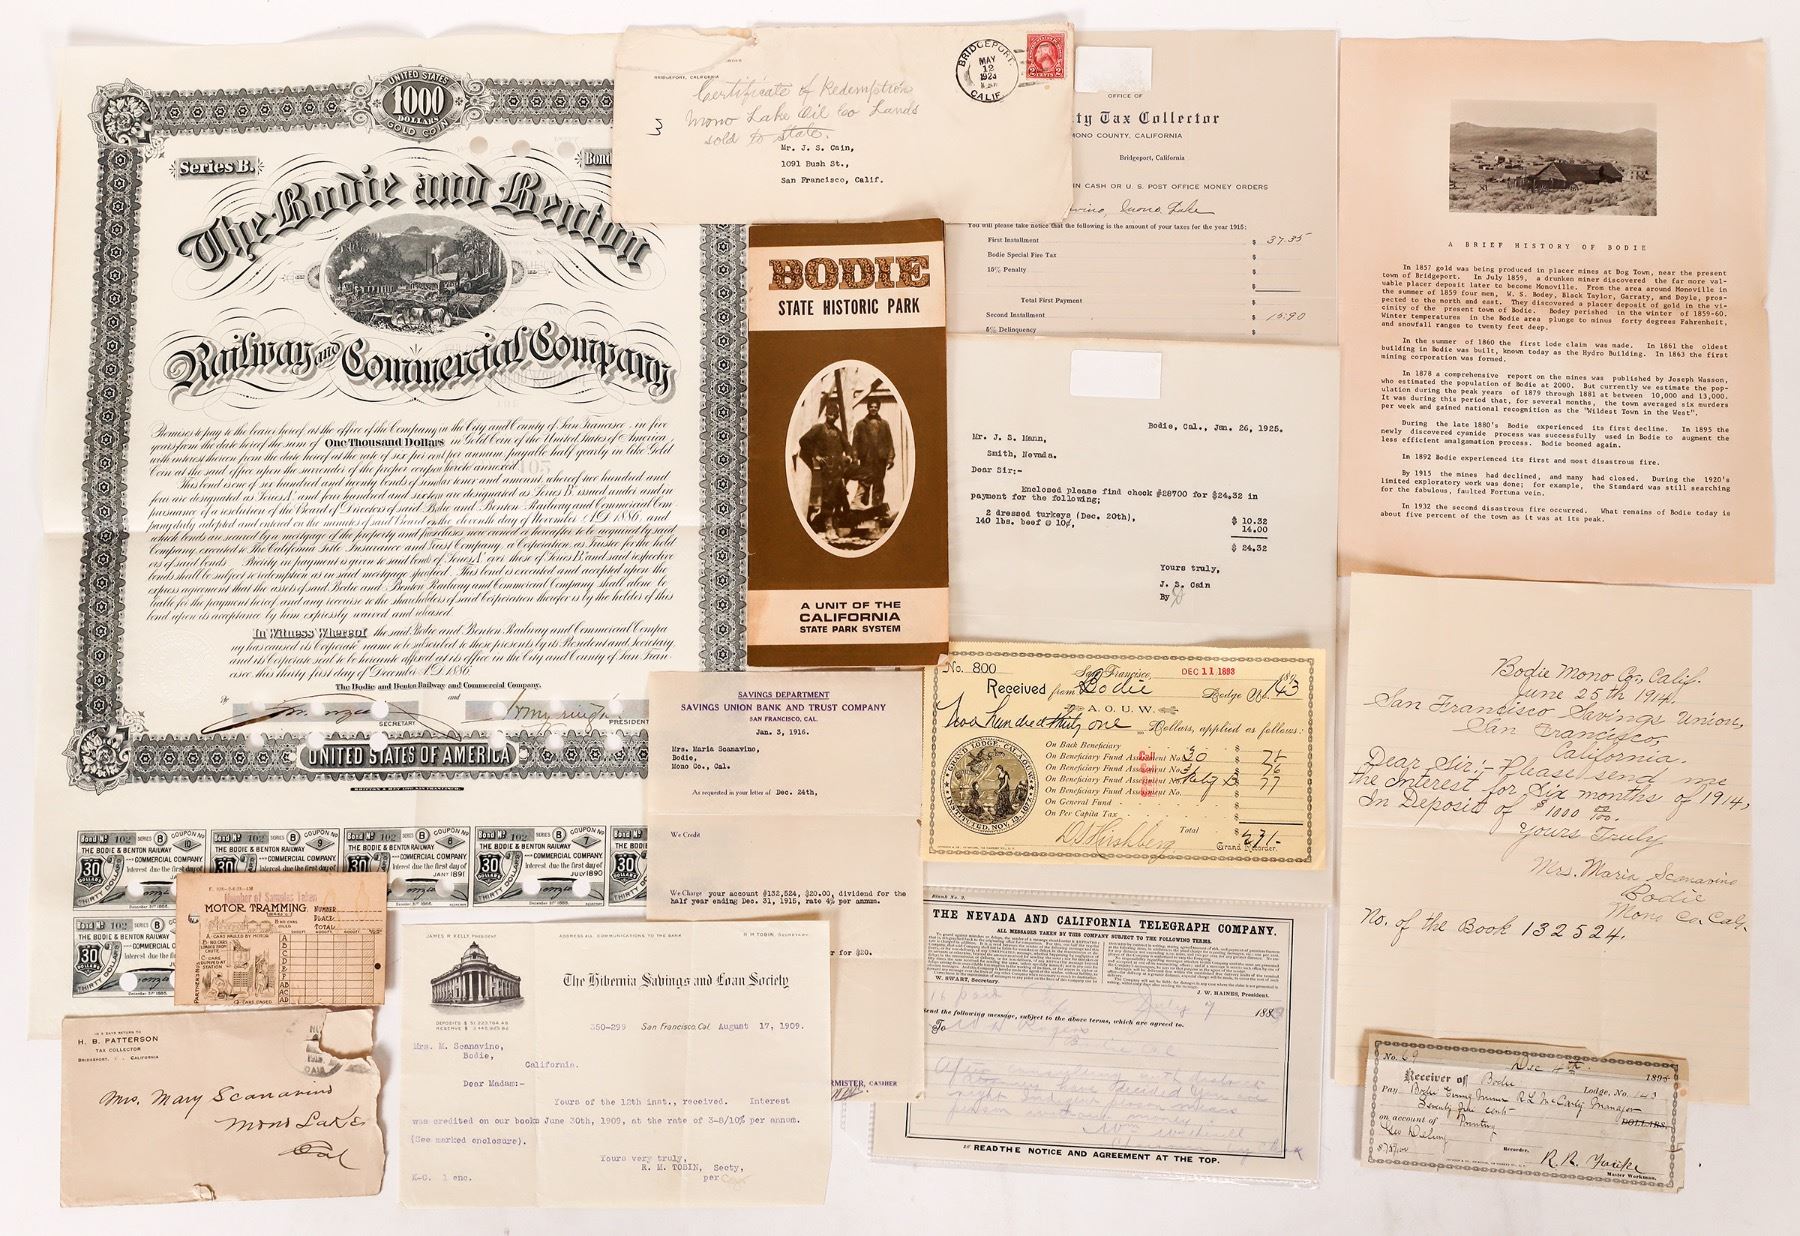 UNITED STATES
1000
DOLLARS
GOLD COIN
Series B.
Bond
The Bodie and Benton
Railway and Commercial Company
Promises to pay to the bearer hereof at the office of the Company in the City and County of San Francisco, in five
years from the date hereof the sum of One Thousand Dollars in Gold Coin of the United States of America
with interest thereon from the date hereof at the rate of six per cent per annum, payable half yearly in like Gold
Coin at the said office upon the surrender of the proper coupon hereto annexed.
This bond is one of six hundred and twenty bonds of similar tenor and amount, whereof two hundred and
four are designated as Series A and four hundred and sixteen are designated as Series B issued under and in
pursuance of a resolution of the Board of Directors of said Bodie and Benton Railway and Commercial Com-
pany duly adopted and entered on the minutes of said Board on the eleventh day of November A.D. 1886, and
which bonds are secured by a mortgage of the property and franchises now owned or hereafter to be acquired by said
Company, executed to The California Safe Insurance and Trust Company, a Corporation, as Trustee for the hold-
ers of said bonds. Priority in payment is given to said bonds of Series A over those of Series B and said respective
bonds shall be subject to redemption as in said mortgage specified. This bond is executed and accepted upon the
express agreement that the assets of said Bodie and Benton Railway and Commercial Company shall alone be
liable for the payment hereof and any recourse to the shareholders of said Corporation therefor is by the holder of this
bond upon its acceptance by him expressly waived and released.
In Witness Whereof the said Bodie and Benton Railway and Commercial Compa-
ny has caused its Corporate name to be subscribed to these presents by its President and Secretary
and its Corporate seal to be hereunto affixed at its office in the City and County of San Fran-
cisco this thirty first day of December A.D. 1886.
The Bodie and Benton Railway and Commercial Company,
By and
SECRETARY PRESIDENT
UNITED STATES OF AMERICA
Bond No 102 SERIES B COUPON No 10
THE BODIE & BENTON RAILWAY
AND COMMERCIAL COMPANY.
30 DOLLARS
Bond No 102 SERIES B COUPON No 9
THE BODIE & BENTON RAILWAY
AND COMMERCIAL COMPANY.
30
Bond No 102 SERIES B COUPON No 8
THE BODIE & BENTON RAILWAY
AND COMMERCIAL COMPANY.
Interest due the first day of
JANY 1891
30
THIRTY DOLLARS
Bond No 102 SERIES B COUPON No 7
THE BODIE & BENTON RAILWAY
AND COMMERCIAL COMPANY.
Interest due the first day of
JULY 1890
30
THIRTY DOLLARS
Bond No 102 SERIES B
THE BODIE & BENTON
AND COMMERCIAL
Interest due the
30
THIRTY DOLLARS
Number of Samples Taken
MOTOR TRAMMING
NUMBER
PLACE
TOTAL
A-CARS PULLED BY MOTOR
B-NO. CARS
C-CARS
DUMPED AT
STATION
IN 5 DAYS RETURN TO
H. B. PATTERSON
TAX COLLECTOR
BRIDGEPORT, CALIFORNIA
Mrs. Mary Scanavino
Mono Lake
Cal
BRIDGEPORT, CALIFORNIA
Certificate of Redemption
Mono Lake Oil Co Lands
sold to State.
Mr. J. S. Cain,
1091 Bush St.,
San Francisco, Calif.
BRIDGEPORT,
MAY
12
CALIF.
2 CENTS 2
BODIE
STATE HISTORIC PARK
A UNIT OF THE
CALIFORNIA
STATE PARK SYSTEM
OFFICE OF
ty Tax Collector
MONO COUNTY, CALIFORNIA
Bridgeport, California
IN CASH OR U. S. POST OFFICE MONEY ORDERS
vino, Mono Lake
You will please take notice that the following is the amount of your taxes for the year 1915:
First Installment $ 37.35
Bodie Special Fire Tax $
15% Penalty $
$
Total First Payment $
Second Installment $ 15.90
5% Delinquency $
Bodie, Cal., Jan. 26, 1925.
Mr. J. S. Mann,
Smith, Nevada.
Dear Sir:-
Enclosed please find check #28700 for $24.32 in
payment for the following;
2 dressed turkeys (Dec. 20th), $ 10.32
140 lbs. beef @ 10¢, 14.00
$ 24.32
Yours truly,
J. S. Cain
By
A BRIEF HISTORY OF BODIE
In 1857 gold was being produced in placer mines at Dog Town, near the present
town of Bridgeport. In July 1859, a drunken miner discovered the far more val-
uable placer deposit later to become Monoville. From the area around Monoville in
the summer of 1859 four men, W. S. Bodey, Black Taylor, Garraty, and Doyle, pros-
pected to the north and east. They discovered a placer deposit of gold in the vi-
cinity of the present town of Bodie. Bodey perished in the winter of 1859-60.
Winter temperatures in the Bodie area plunge to minus forty degrees Fahrenheit,
and snowfall ranges to twenty feet deep.
In the summer of 1860 the first lode claim was made. In 1861 the oldest
building in Bodie was built, known today as the Hydro Building. In 1863 the first
mining corporation was formed.
In 1878 a comprehensive report on the mines was published by Joseph Wasson,
who estimated the population of Bodie at 2000. But currently we estimate the pop-
ulation during the peak years of 1879 through 1881 at between 10,000 and 13,000.
It was during this period that, for several months, the town averaged six murders
per week and gained national recognition as the "Wildest Town in the West".
During the late 1880's Bodie experienced its first decline. In 1895 the
newly discovered cyanide process was successfully used in Bodie to augment the
less efficient amalgamation process. Bodie boomed again.
In 1892 Bodie experienced its first and most disastrous fire.
By 1915 the mines had declined, and many had closed. During the 1920's
limited exploratory work was done; for example, the Standard was still searching
for the fabulous, faulted Fortuna vein.
In 1932 the second disastrous fire occurred. What remains of Bodie today is
about five percent of the town as it was at its peak.
SAVINGS DEPARTMENT
SAVINGS UNION BANK AND TRUST COMPANY
SAN FRANCISCO, CAL.
Jan. 3, 1916.
Mrs. Maria Scanavino,
Bodie,
Mono Co., Cal.
As requested in your letter of Dec. 24th,
We Credit
We Charge your account #132,524, $20.00, dividend for the
half year ending Dec. 31, 1915, rate 4% per annum.
r for $20.
RMISTER, CASHIER
No. 800
San Francisco, DEC 11 1893
Received from Bodie Lodge No. 143
A. O. U. W.
Two hundred thirty one Dollars, applied as follows:
On Back Beneficiary
On Beneficiary Fund Assessment No.
On Beneficiary Fund Assessment No.
On Beneficiary Fund Assessment No.
On General Fund
On Per Capita Tax
Total $ 231-
D S Hirshberg
Grand Recorder.
JAMES R KELLY PRESIDENT
ADDRESS ALL COMMUNICATIONS TO THE BANK
R. M. TOBIN, SECRETARY
The Hibernia Savings and Loan Society
350-299 San Francisco, Cal. August 17, 1909.
Mrs. M. Scanavino,
Bodie,
California.
Dear Madam:-
Yours of the 12th inst., received. Interest
was credited on our books June 30th, 1909, at the rate of 3-8/10% per annum.
(See marked enclosure).
Yours very truly,
R. M. TOBIN, Secty,
per
K-C. 1 enc.
Blank No. 2.
THE NEVADA AND CALIFORNIA TELEGRAPH COMPANY.
ALL MESSAGES TAKEN BY THIS COMPANY SUBJECT TO THE FOLLOWING TERMS.
W. SWART, Secretary.
J. W. HAINES, President.
July 7 188
Send the following message, subject to the above terms, which are agreed to.
To
READ THE NOTICE AND AGREEMENT AT THE TOP.
Bodie Mono Co, Calif.
June 25th 1914.
San Francisco Savings Union,
San Francisco,
California.
Dear Sir:- Please send me
the Interest for Six months of 1914,
In Deposit of $1000 00/100.
Yours Truly
Mrs. Maria Scanavino
Bodie
Mono Co. Calif.
No. of the Book 132524.
No. 69 Dec 4th 1895
Receiver of Bodie Lodge No. 143
Pay Bodie Evening Miner R L McCarty Manager
Seventy five cents DOLLARS,
on account of Printing
Recorder.
Master Workman.